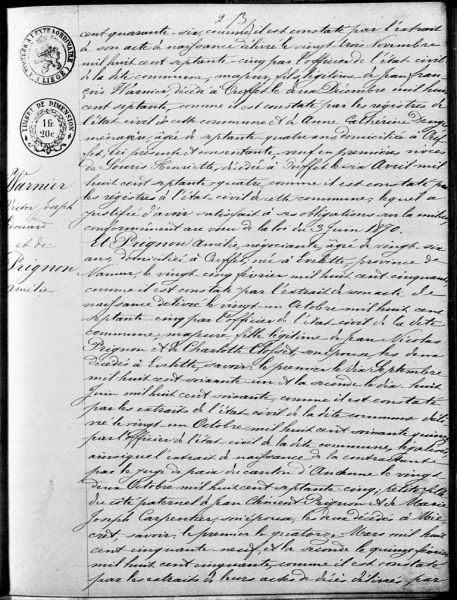 cent quarante-six, comme il est constaté par l'extrait
de son acte de naissance délivré le vingt trois Novembre
mil huit cent septante-cinq par l'officier de l'état civil
de la dite commune, majeur, fils légitime de Jean Fran-
çois Warnier, décédé à le deux Décembre mil huit
cent septante, comme il est constaté par les registres de
l'état civil de cette commune et de Anne Catherine
ménagère, âgée de septante quatre ans domiciliée à
ici présente et consentante, veuf en première noces
de Henriette, décédée à le six Avril mil
huit cent septante quatre, comme il est constaté par
les registres de l'état civil de cette commune, lequel a
justifié d'avoir satisfait à ses obligations sur la milice
conformément au vœu de la loi du 3 Juin 1870.
Et Prignon Amélie, négociante, âgée de vingt six
ans, domiciliée à née à province de
Namur, le vingt cinq février mil huit cent cinquante
comme il est constaté par l'extrait de son acte de
naissance délivré le vingt un Octobre mil huit cent
septante cinq par l'officier de l'état civil de la dite
commune, majeure, fille légitime de Jean Nicolas
Prignon et de Charlotte son épouse, les deux
décédés à savoir: le premier le dix Septembre
mil huit cent soixante un et la seconde le dix huit
Juin mil huit cent soixante, comme il est constaté
par les extraits de l'état civil de la dite commune déli-
vré le vingt un Octobre mil huit cent septante quinze
par l'Officier de l'état civil de la dite commune, légalisés
ainsi que l'extrait de naissance de la contractante
par le juge de paix du canton d'Andenne le vingt
deux Octobre mil huit cent septante cinq, petite fille
du côté paternel de Jean Clément Prignon et de Marie
Joseph Carpentier, son épouse, les deux décédés à
savoir: le premier le quatorze Mars mil huit
cent cinquante neuf et la seconde le quinze février
mil huit cent cinquante, comme il est constaté
par les extraits de leurs actes de décès délivrés par
TIMBRE DE DIMENSION
1f.
20c
Warnier
Victor Joseph
Edouard
et de
Prignon
Amélie